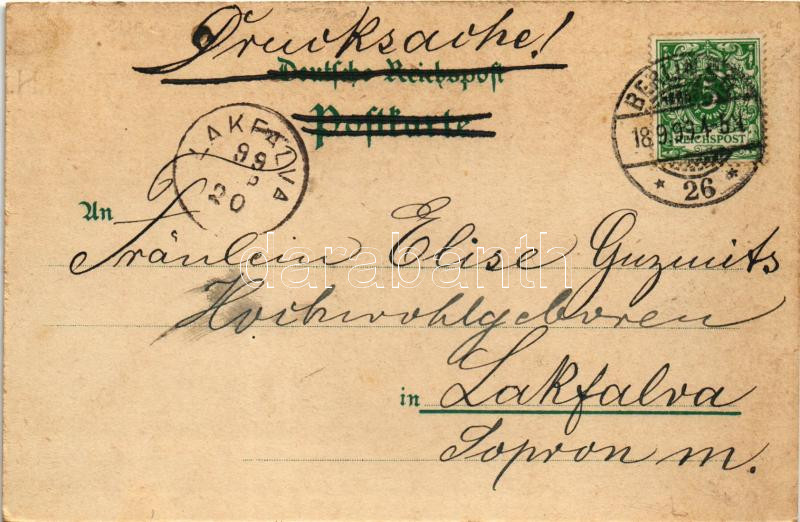 Drucksache!
Deutsche Reichspost
Postkarte
BERLIN
5
18.9.99.4-5N.
REICHSPOST
* 26 *
LAKFALVA
99
20
An
Fräulein Elise Guzmits
Hochwohlgeboren
in Lakfalva
Sopron m.
darabanth